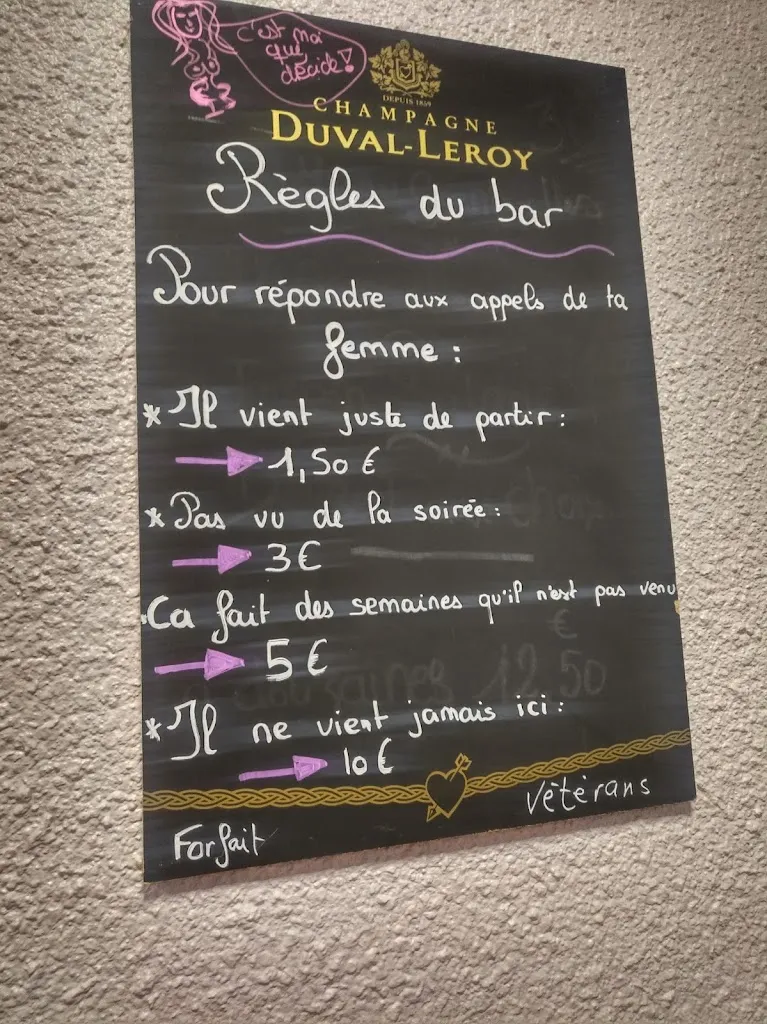 c'est moi
qui
décide!
DEPUIS 1859
CHAMPAGNE
DUVAL-LEROY
Règles du bar
Pour répondre aux appels de ta
femme :
* Il vient juste de partir :
1,50 €
* Pas vu de la soirée :
3 €
Ca fait des semaines qu'il n'est pas venu
5 €
* Il ne vient jamais ici :
10 €
Vétérans
Forfait